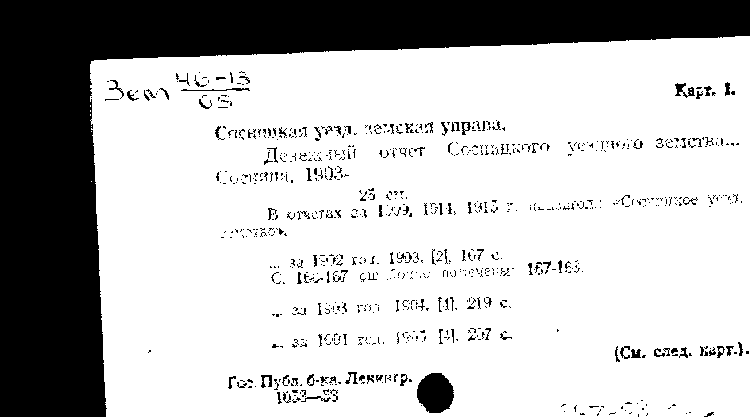 Зем 46-13
05
Карт. 1.
Сосницкая уезд. земская управа.
Денежный отчет Сосницкого уездного земства...
Сосница, 1903-
25 см.
В отчетах за 1909, 1914, 1915 г. «Сосницкое уезд.
... за 1902 год. 1903. [2], 167 с.
С. 166-167 помечены 167-168.
... за 1903 год. 1904. [4], 219 с.
... за 1904 год. 1905. [4], 207 с.
(См. след. карт.).
Гос. Публ. б-ка. Ленингр.
1653—53